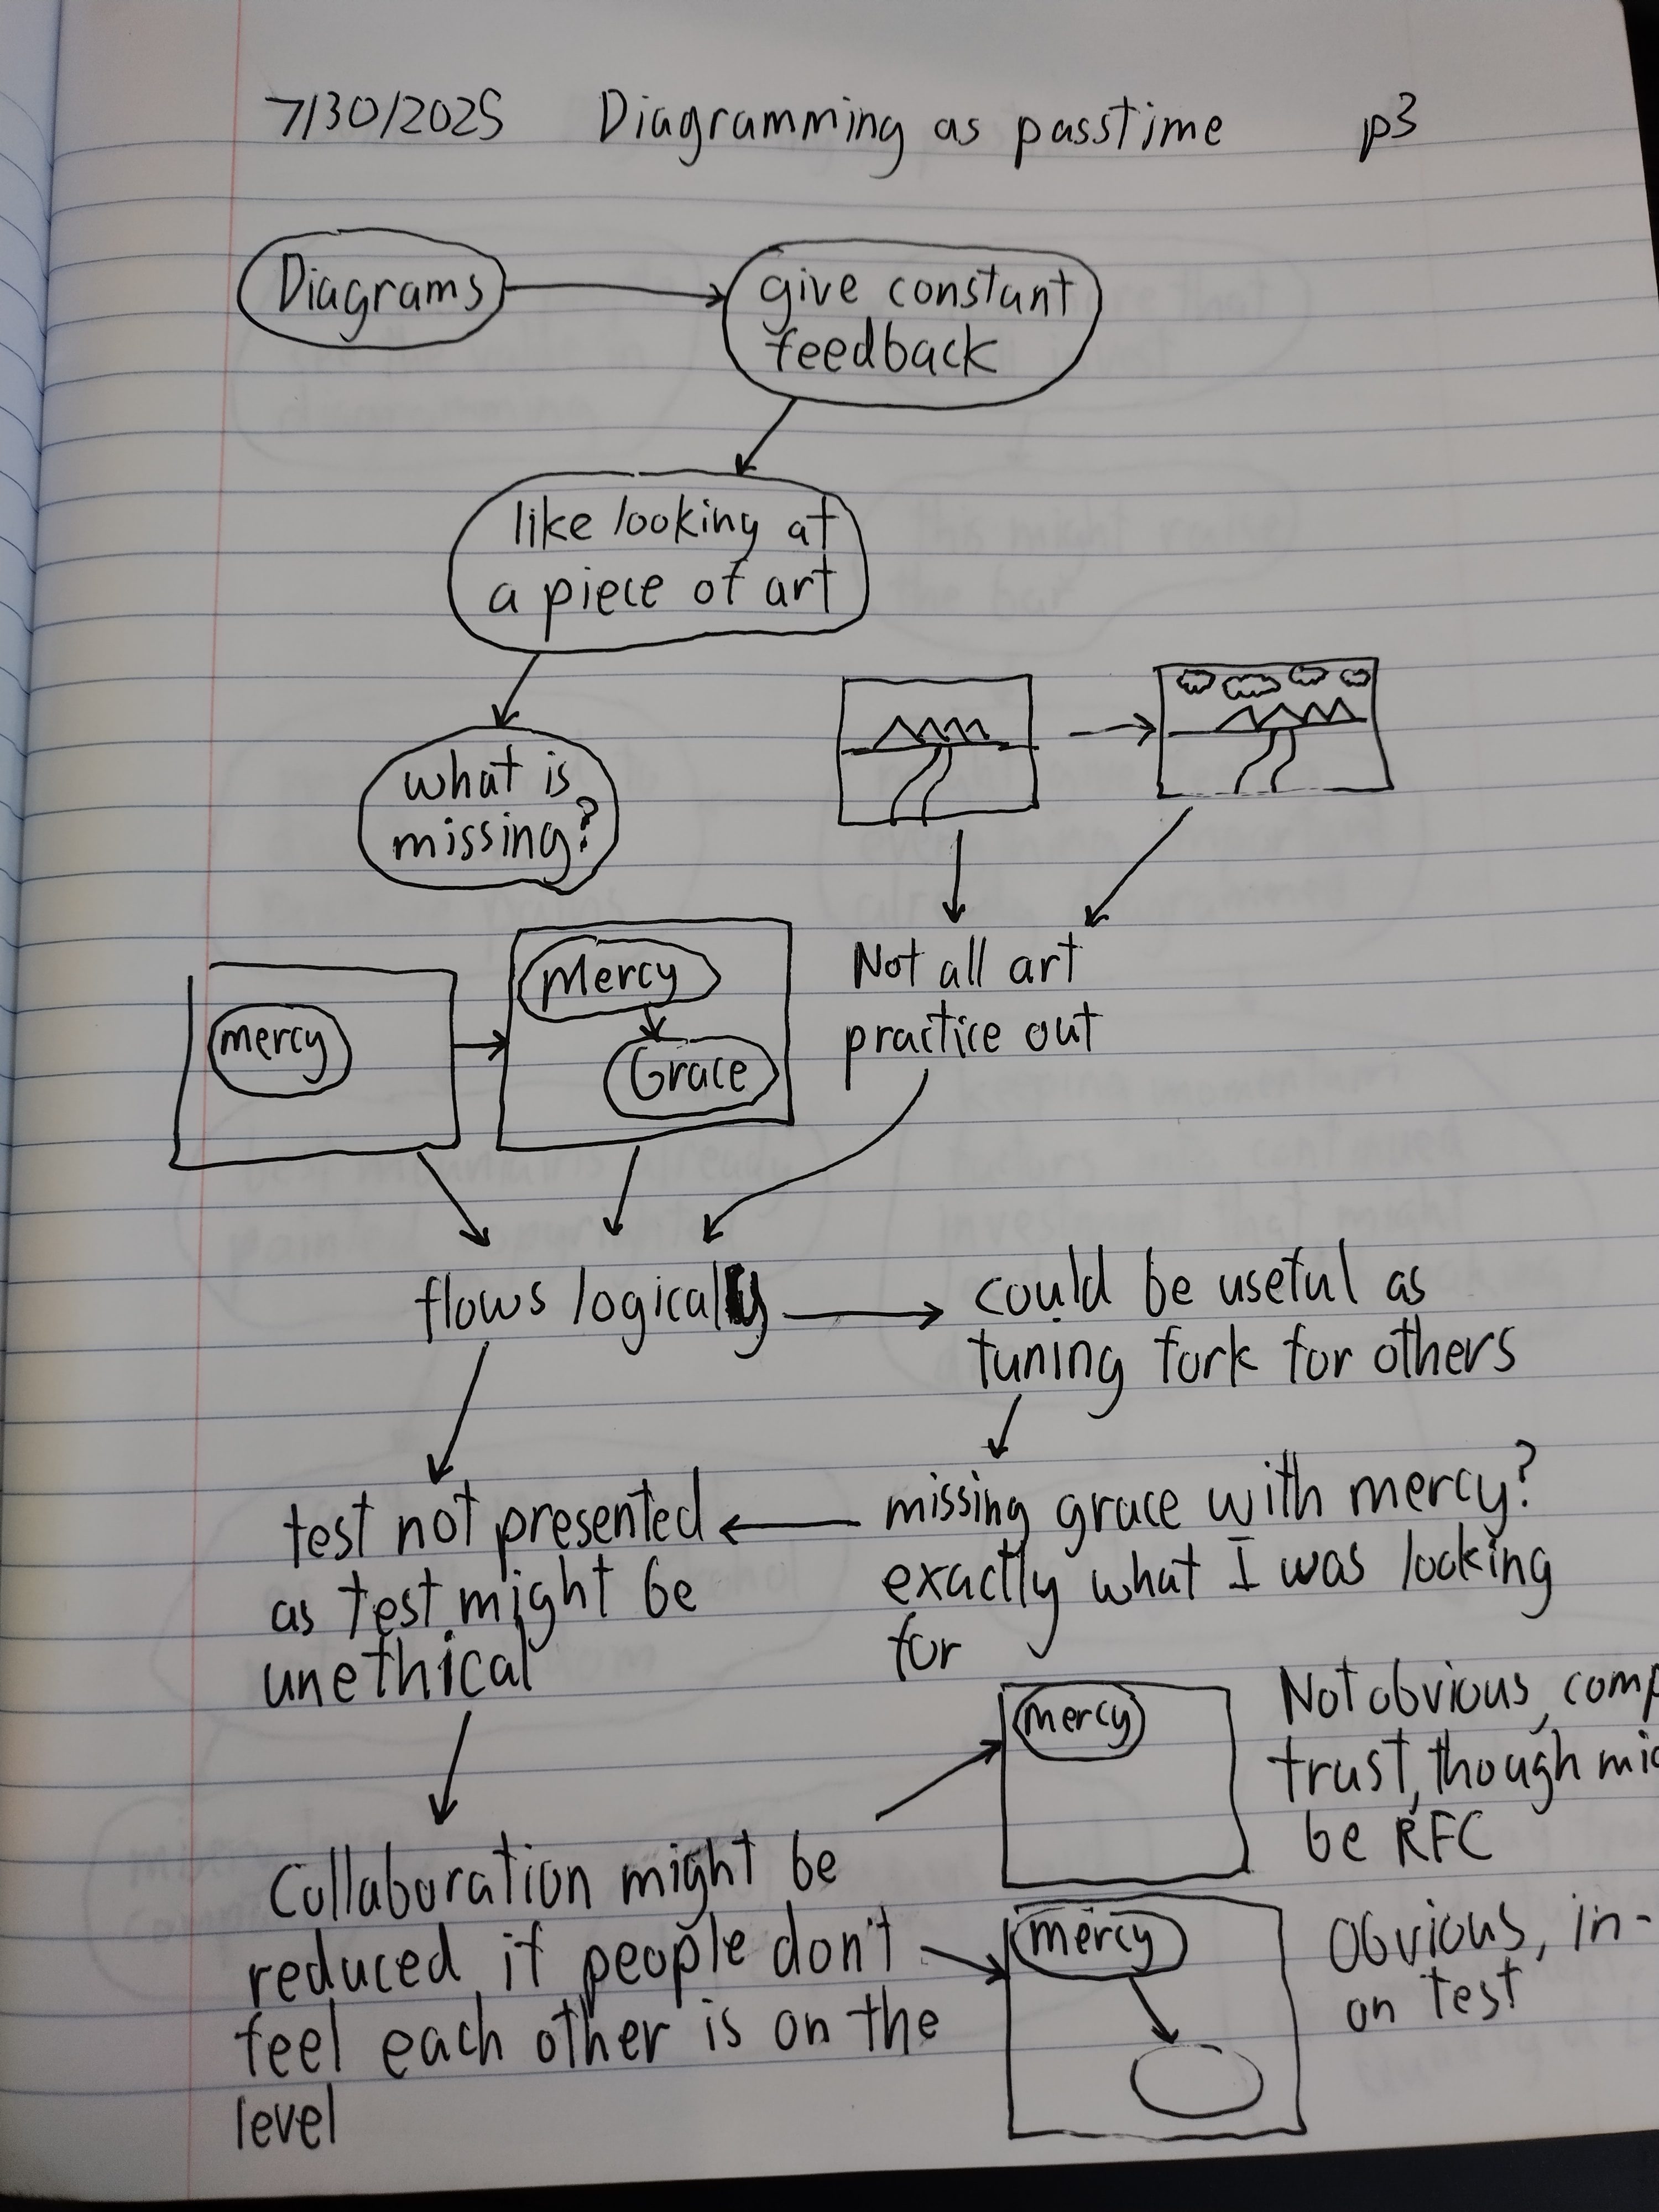 7/30/2025 Diagramming as passtime p3
Diagrams
give constant
feedback
like looking at
a piece of art
what is
missing?
mercy
Mercy
Grace
Not all art
practice out
flows logically
could be useful as
tuning fork for others
missing grace with mercy?
exactly what I was looking
for
test not presented
as test might be
unethical
Collaboration might be
reduced if people don't
feel each other is on the
level
mercy
Not obvious,
trust, though
be RFC
mercy
Obvious, in-
on test